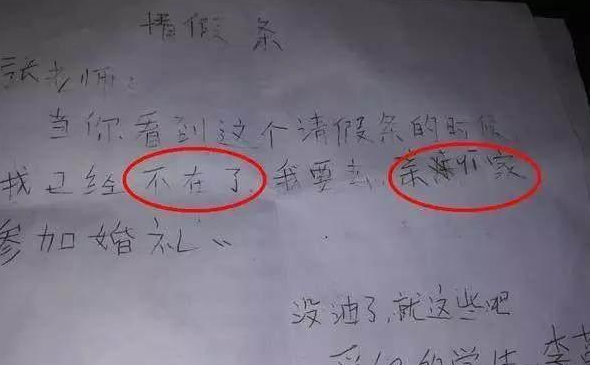 请假条
張老师:
当你看到这个请假条的时候
我已经不在了,我要去亲家
参加婚礼。
没油了,就这些吧
的学生:李